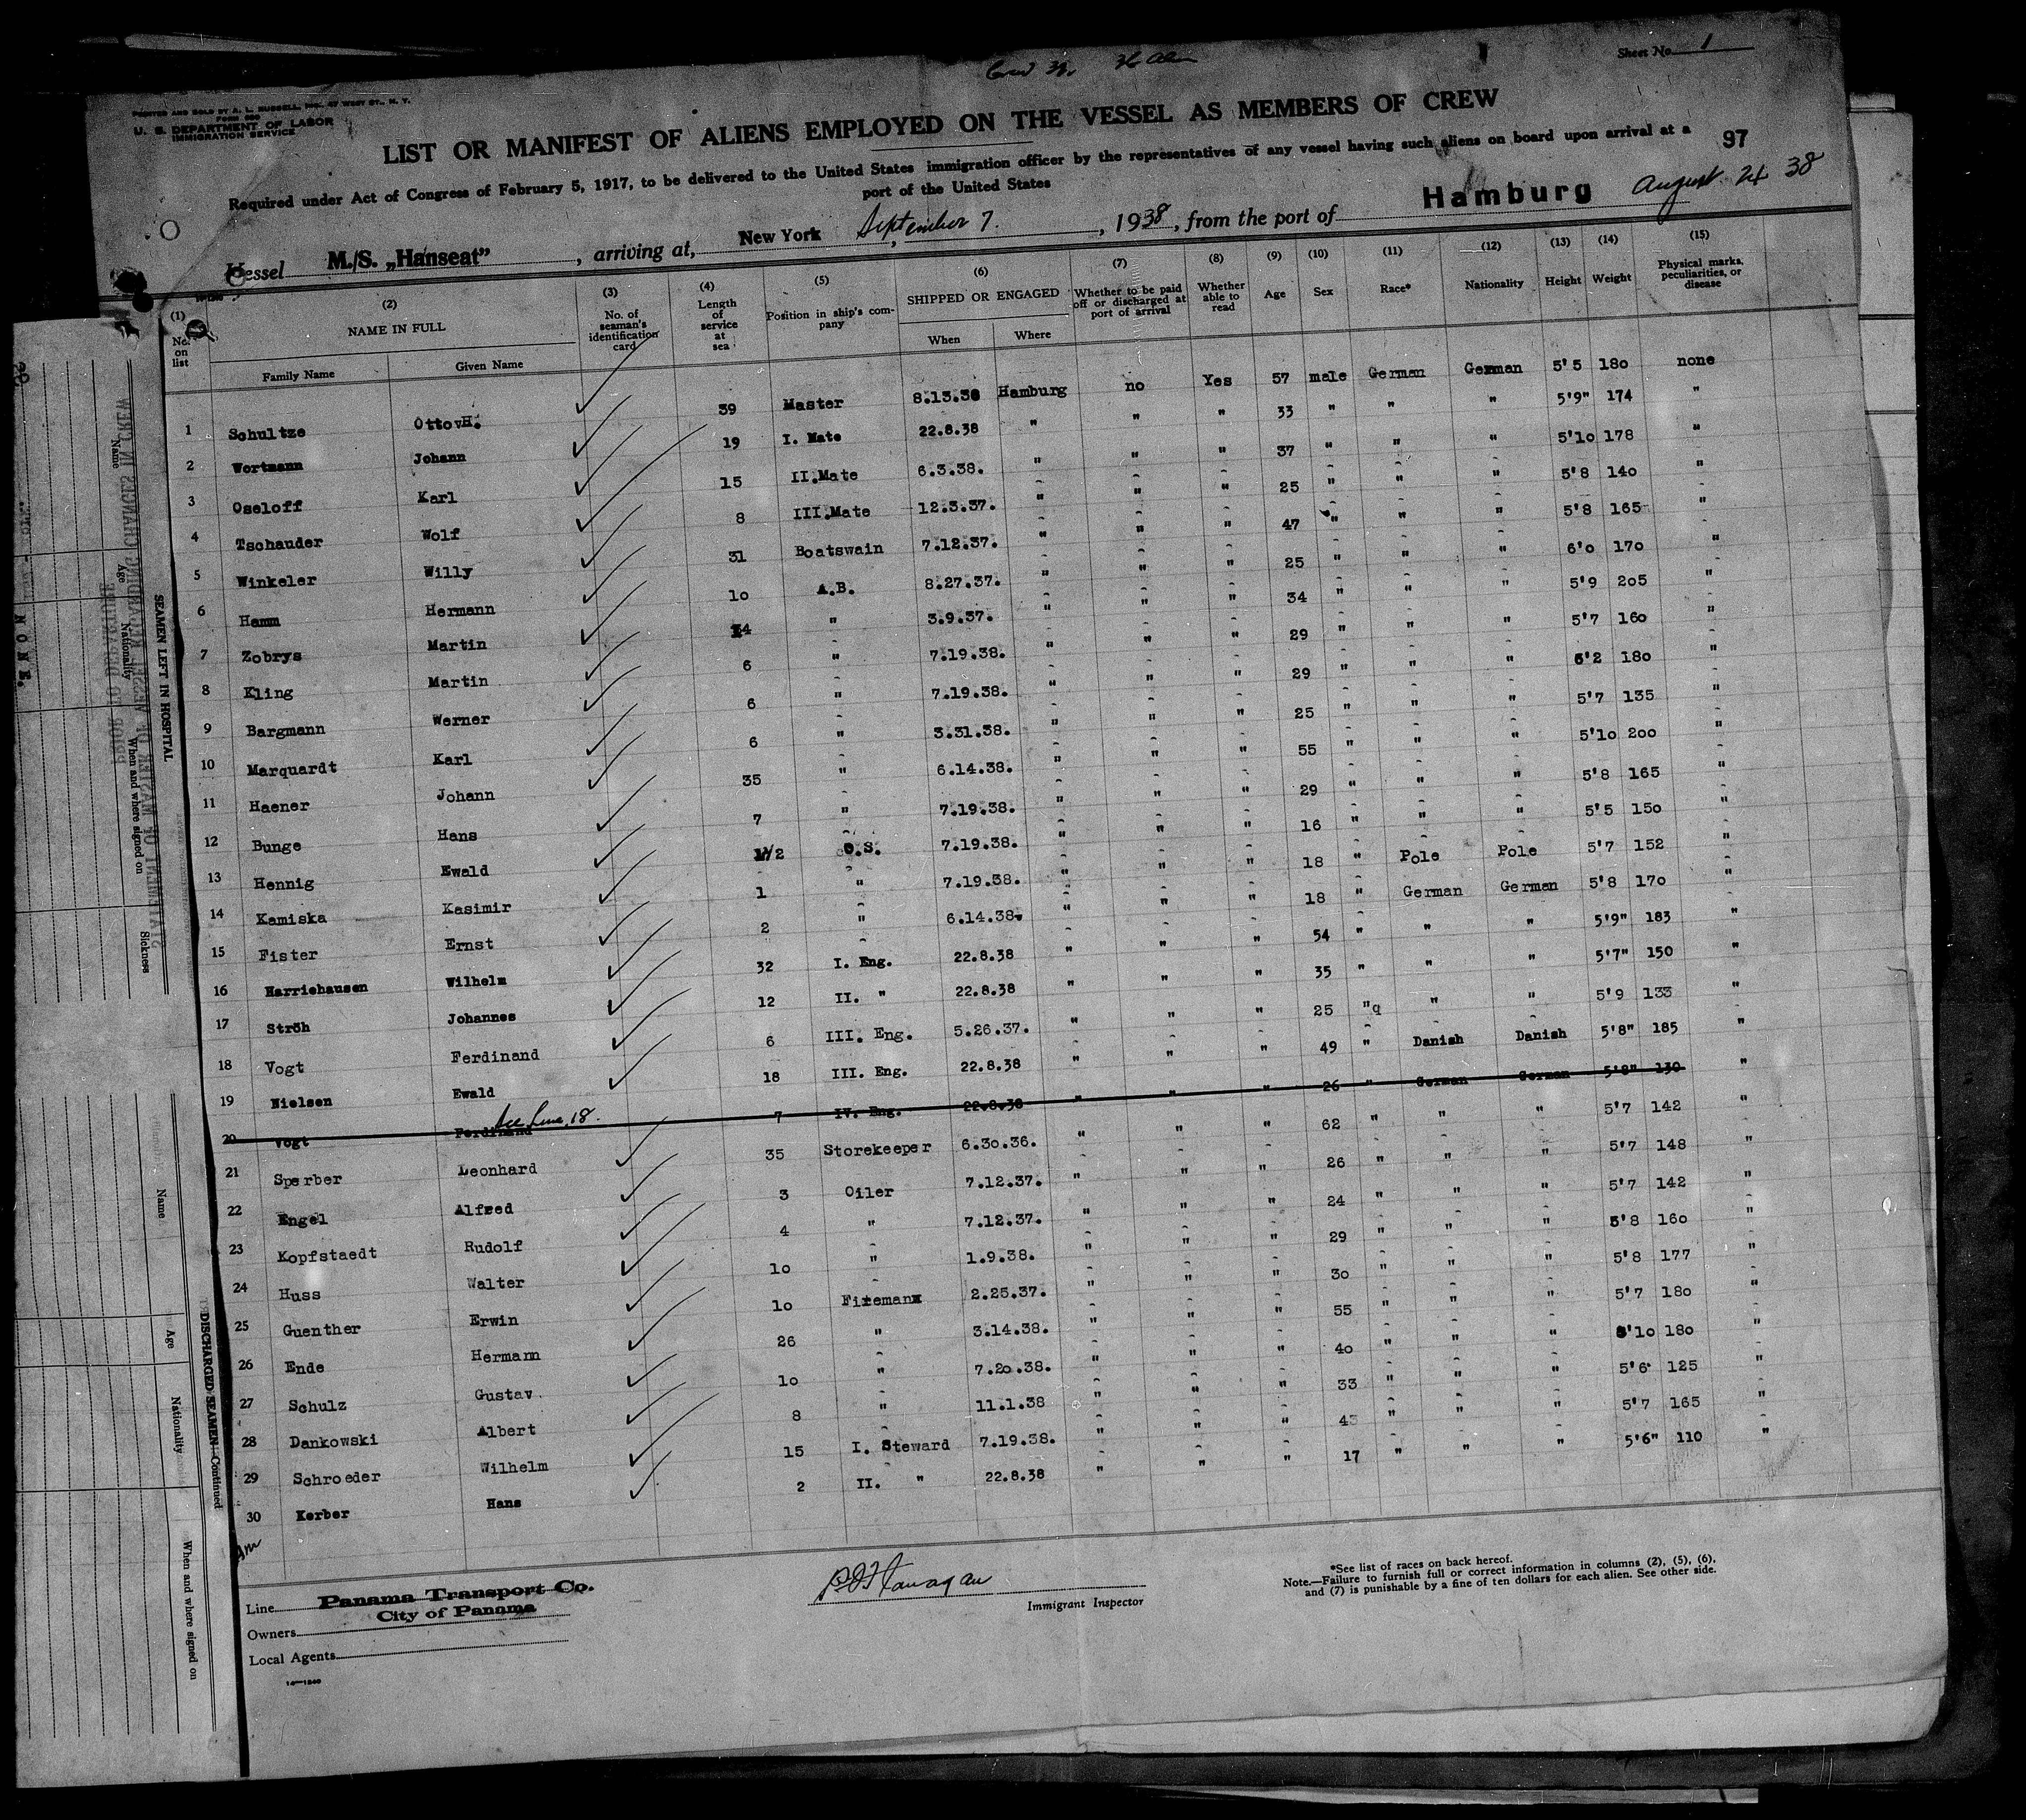 Sheet No. 1
PRINTED AND SOLD BY A. L. RUSSELL, INC., 47 WEST ST., N. Y.
U. S. DEPARTMENT OF LABOR
IMMIGRATION SERVICE
LIST OR MANIFEST OF ALIENS EMPLOYED ON THE VESSEL AS MEMBERS OF CREW
97
Required under Act of Congress of February 5, 1917, to be delivered to the United States immigration officer by the representatives of any vessel having such aliens on board upon arrival at a
port of the United States
Vessel M./S. „Hanseat” , arriving at, New York , September 7. , 1938, from the port of Hamburg August 24 38
(1) No. on list (2) NAME IN FULL Family Name Given Name (3) No. of seaman's identification card (4) Length of service at sea (5) Position in ship's company (6) SHIPPED OR ENGAGED When Where (7) Whether to be paid off or discharged at port of arrival (8) Whether able to read (9) Age (10) Sex (11) Race* (12) Nationality (13) Height (14) Weight (15) Physical marks, peculiarities, or disease
1 Schultze Otto v H. 39 Master 8.13.38 Hamburg no Yes 57 male German German 5'5 180 none
2 Wortmann Johann 19 I. Mate 22.8.38 " " " 33 " " " 5'9" 174 "
3 Oseloff Karl 15 II.Mate 6.3.38. " " " 37 " " " 5'10 178 "
4 Tschauder Wolf 8 III.Mate 12.3.37. " " " 25 " " " 5'8 140 "
5 Winkeler Willy 31 Boatswain 7.12.37. " " " 47 " " " 5'8 165 "
6 Hamm Hermann 10 A.B. 8.27.37. " " " 25 " " " 6'0 170 "
7 Zobrys Martin 14 " 3.9.37. " " " 34 " " " 5'9 205 "
8 Kling Martin 6 " 7.19.38. " " " 29 " " " 5'7 160 "
9 Bargmann Werner 6 " 7.19.38. " " " 29 " " " 6'2 180 "
10 Marquardt Karl 6 " 3.31.38. " " " 25 " " " 5'7 135 "
11 Haener Johann 35 " 6.14.38. " " " 55 " " " 5'10 200 "
12 Bunge Hans 7 " 7.19.38. " " " 29 " " " 5'8 165 "
13 Hennig Ewald 1/2 O.S. 7.19.38. " " " 16 " " " 5'5 150 "
14 Kamiska Kasimir 1 " 7.19.38. " " " 18 " Pole Pole 5'7 152 "
15 Fister Ernst 2 " 6.14.38. " " " 18 " German German 5'8 170 "
16 Harriehausen Wilhelm 32 I. Eng. 22.8.38 " " " 54 " " " 5'9" 183 "
17 Ströh Johannes 12 II. " 22.8.38 " " " 35 " " " 5'7" 150 "
18 Vogt Ferdinand 6 III. Eng. 5.26.37. " " " 25 "q " " 5'9 133 "
19 Nielsen Ewald 18 III. Eng. 22.8.38 " " " 49 " Danish Danish 5'8" 185 "
See Line 18.
20 Vogt Ferdinand 7 IV. Eng. 22.8.38 " " " 26 " German German 5'8" 130 "
21 Sperber Leonhard 35 Storekeeper 6.30.36. " " " 62 " " " 5'7 142 "
22 Engel Alfred 3 Oiler 7.12.37. " " " 26 " " " 5'7 148 "
23 Kopfstaedt Rudolf 4 " 7.12.37. " " " 24 " " " 5'7 142 "
24 Huss Walter 10 " 1.9.38. " " " 29 " " " 5'8 160 "
25 Guenther Erwin 10 Fireman 2.25.37. " " " 30 " " " 5'8 177 "
26 Ende Hermann 26 " 3.14.38. " " " 55 " " " 5'7 180 "
27 Schulz Gustav 10 " 7.20.38. " " " 40 " " " 5'10 180 "
28 Dankowski Albert 8 " 11.1.38 " " " 33 " " " 5'6 125 "
29 Schroeder Wilhelm 15 I. Steward 7.19.38. " " " 43 " " " 5'7 165 "
30 Kerber Hans 2 II. " 22.8.38 " " " 17 " " " 5'6" 110 "
Line Panama Transport Co.
City of Panama
Owners
Local Agents
Immigrant Inspector
*See list of races on back hereof.
Note.—Failure to furnish full or correct information in columns (2), (5), (6),
and (7) is punishable by a fine of ten dollars for each alien. See other side.
SEAMEN LEFT IN HOSPITAL
Name Age Nationality When and where signed on Sickness
NONE.
STATEMENT OF MASTER OF VESSEL REGARDING CHANGES IN CREW
PRIOR TO DEPARTURE
DISCHARGED SEAMEN—Continued
Name Age Nationality When and where signed on